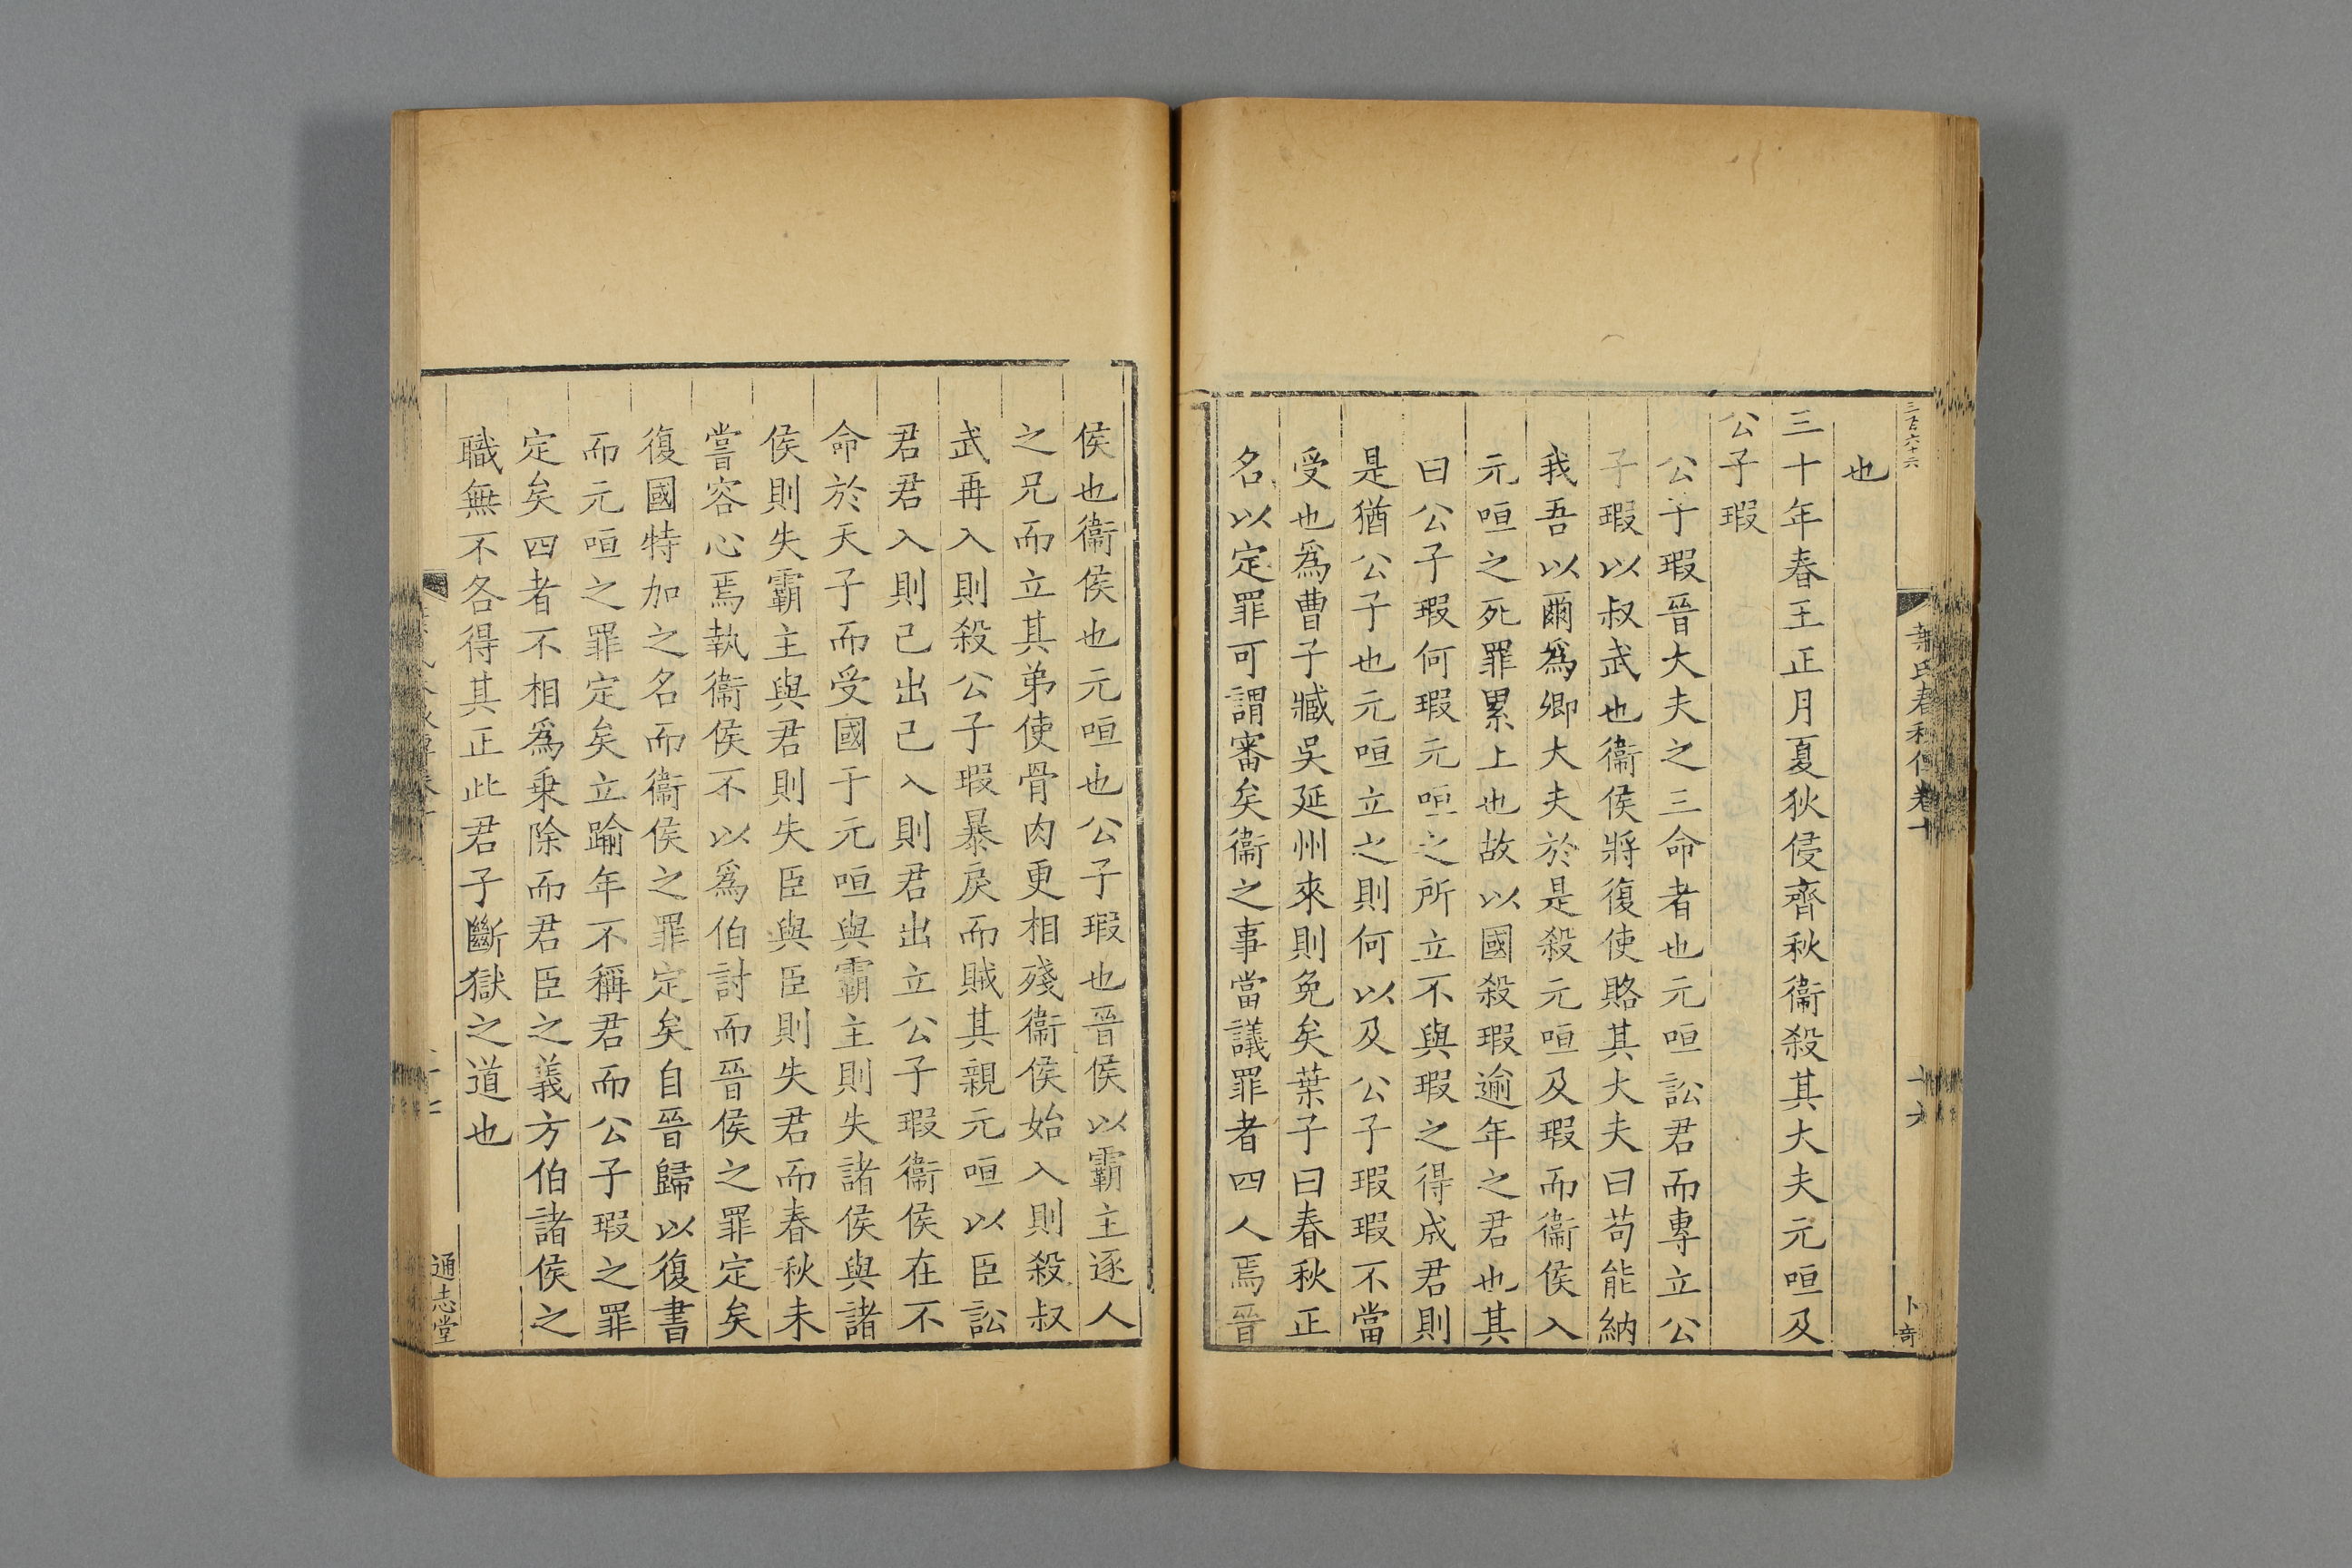 三百六十六
葉氏春秋傳卷十
十六
卜奇
也
三十年春王正月夏狄侵齊秋衞殺其大夫元咺及
公子瑕
公子瑕晉大夫之三命者也元咺訟君而專立公
子瑕以叔武也衞侯將復使賂其大夫曰苟能納
我吾以爾爲卿大夫於是殺元咺及瑕而衞侯入
元咺之死罪累上也故以國殺瑕逾年之君也其
曰公子瑕何瑕元咺之所立不與瑕之得成君則
是猶公子也元咺立之則何以及公子瑕瑕不當
受也爲曹子臧吳延州來則免矣葉子曰春秋正
名以定罪可謂審矣衞之事當議罪者四人焉晉
侯也衞侯也元咺也公子瑕也晉侯以霸主逐人
之兄而立其弟使骨肉更相殘衞侯始入則殺叔
武再入則殺公子瑕暴戾而賊其親元咺以臣訟
君君入則己出己入則君出立公子瑕衞侯在不
命於天子而受國于元咺與霸主則失諸侯與諸
侯則失霸主與君則失臣與臣則失君而春秋未
嘗容心焉執衞侯不以爲伯討而晉侯之罪定矣
復國特加之名而衞侯之罪定矣自晉歸以復書
而元咺之罪定矣立踰年不稱君而公子瑕之罪
定矣四者不相爲乗除而君臣之義方伯諸侯之
職無不各得其正此君子斷獄之道也
通志堂